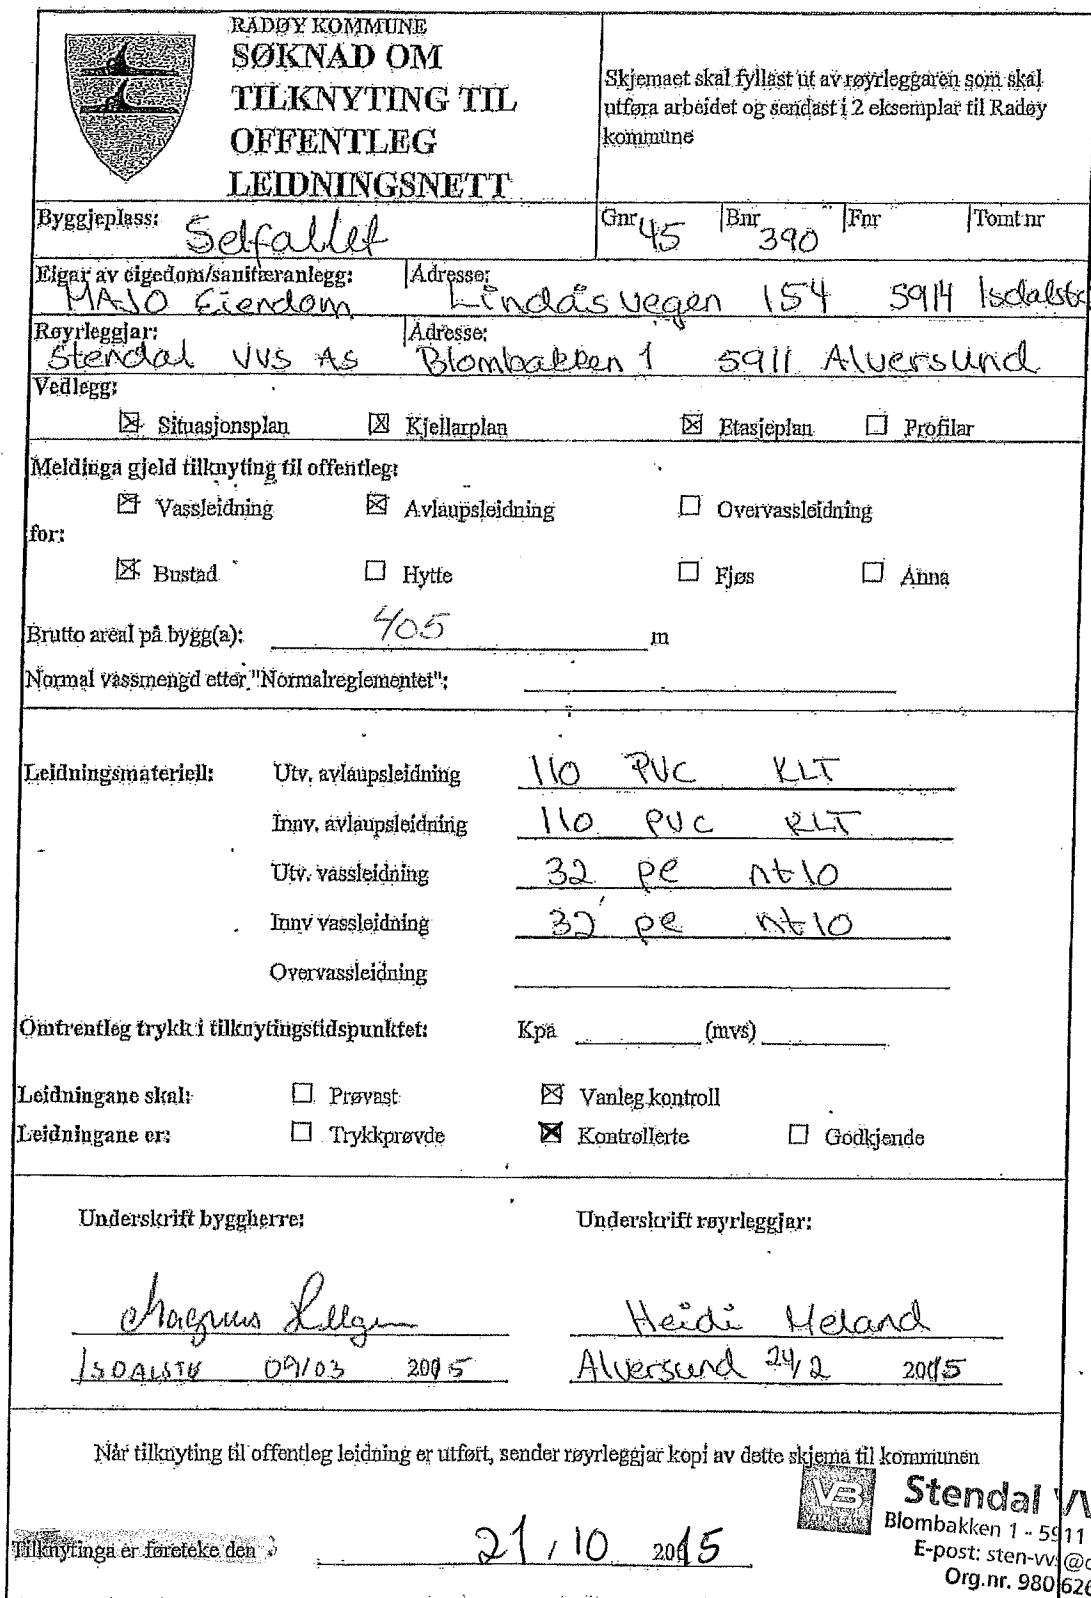 RADØY KOMMUNE
SØKNAD OM
TILKNYTING TIL
OFFENTLEG
LEIDNINGSNETT
Skjemaet skal fyllast ut av røyrleggaren som skal
utføra arbeidet og sendast i 2 eksemplar til Radøy
kommune
Byggjeplass: Selfallet Gnr 45 Bnr 390 Fnr Tomt nr
Eigar av eigedom/sanitæranlegg: Adresse:
MAJO Eiendom Lindåsvegen 154 5914 Isdalstø
Røyrleggjar: Adresse:
Stendal VVS As Blombakken 1 5911 Alversund
Vedlegg:
☒ Situasjonsplan ☒ Kjellarplan ☒ Etasjeplan ☐ Profilar
Meldinga gjeld tilknyting til offentleg:
☒ Vassleidning ☒ Avlaupsleidning ☐ Overvassleidning
for:
☒ Bustad ☐ Hytte ☐ Fjøs ☐ Anna
Brutto areal på bygg(a): 405 m
Normal vassmengd etter "Normalreglementet":
Leidningsmateriell: Utv. avlaupsleidning 110 PVC KLT
Innv. avlaupsleidning 110 PVC KLT
Utv. vassleidning 32 pe nt10
Innv vassleidning 32 pe nt10
Overvassleidning
Omtrentleg trykk i tilknytingstidspunktet: Kpa (mvs)
Leidningane skal: ☐ Prøvast ☒ Vanleg kontroll
Leidningane er: ☐ Trykkprøvde ☒ Kontrollerte ☐ Godkjende
Underskrift byggherre: Underskrift røyrleggjar:
Magnus Heidi Meland
ISDALSTØ 09/03 2015 Alversund 24/2 2015
Når tilknyting til offentleg leidning er utført, sender røyrleggjar kopi av dette skjema til kommunen
VB
Stendal
Blombakken 1 - 5911
E-post: sten-vvs@
Org.nr. 980 626
Tilknytinga er føreteke den 21, 10 2015